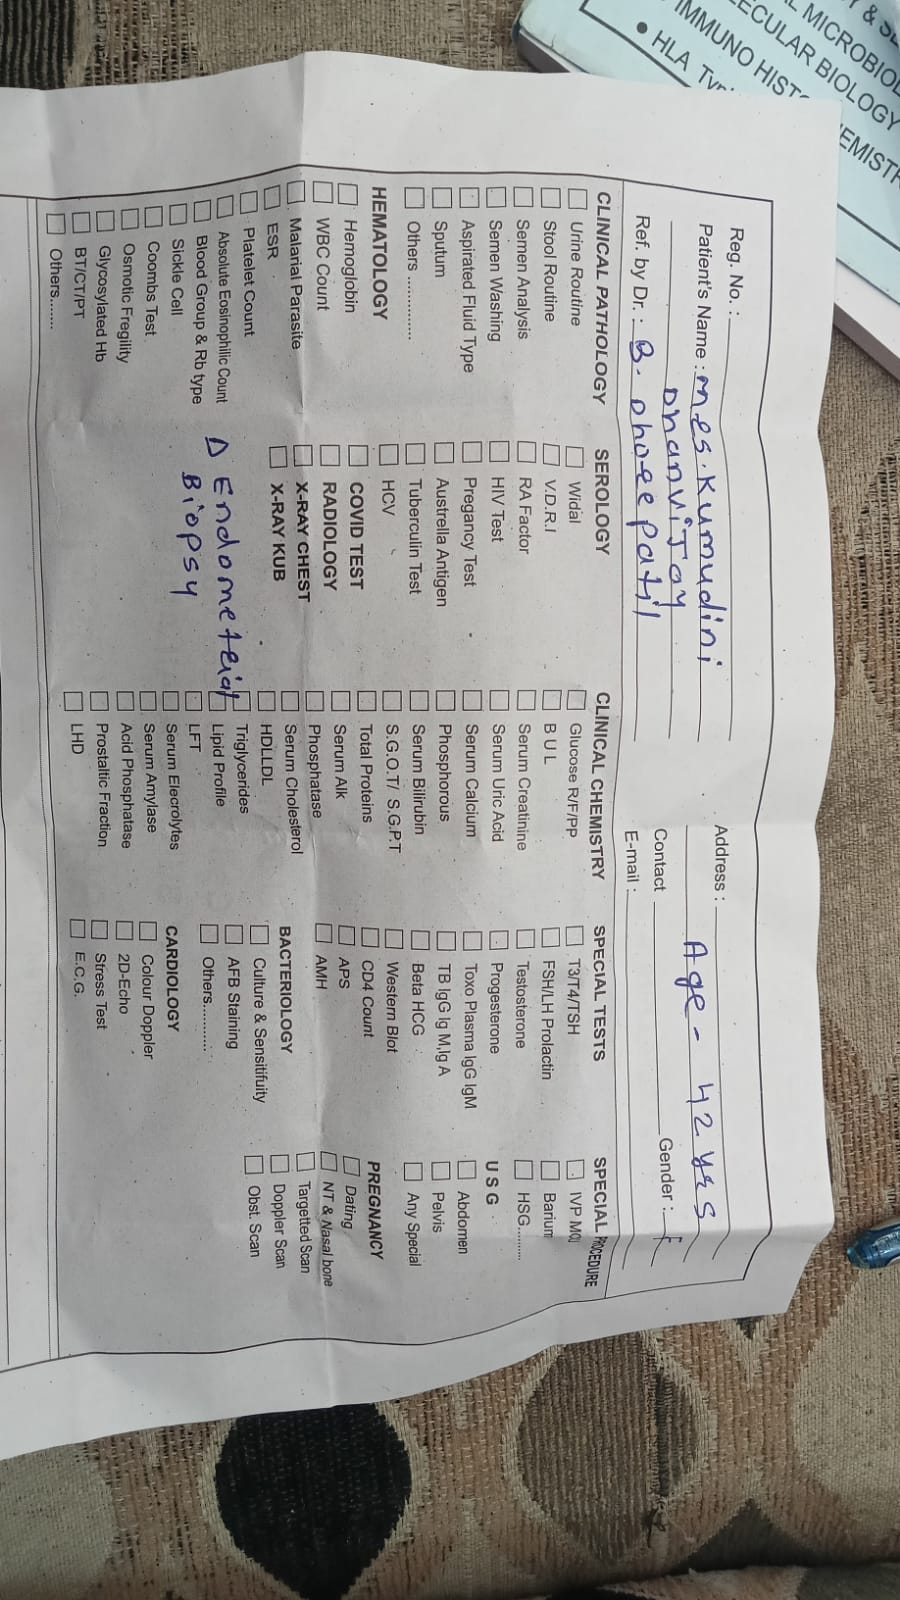 Reg. No. :
Patient's Name : Mrs. Kumudini
Dhanvijay
Ref. by Dr. : B. Dhote patil
Address :
Age - 42 yrs
Contact
Gender : F
E-mail :
CLINICAL PATHOLOGY
Urine Routine
Stool Routine
Semen Analysis
Semen Washing
Aspirated Fluid Type
Sputum
Others ............
HEMATOLOGY
Hemoglobin
WBC Count
Malarial Parasite
ESR
Platelet Count
Absolute Eosinophilic Count
Blood Group & Rb type
Sickle Cell
Coombs Test
Osmotic Fregility
Glycosylated Hb
BT/CT/PT
Others.......
SEROLOGY
Widal
V.D.R.I
RA Factor
HIV Test
Pregancy Test
Austrella Antigen
Tuberculin Test
HCV
COVID TEST
RADIOLOGY
X-RAY CHEST
X-RAY KUB
Endometrial
Biopsy
CLINICAL CHEMISTRY
Glucose R/F/PP
B U L
Serum Creatinine
Serum Uric Acid
Serum Calcium
Phosphorous
Serum Bilirubin
S.G.O.T/ S.G.P.T
Total Proteins
Serum Alk
Phosphatase
Serum Cholesterol
HDLLDL
Triglycerides
Lipid Profile
LFT
Serum Elecrolytes
Serum Amylase
Acid Phosphatase
Prostaltic Fraction
LHD
SPECIAL TESTS
T3/T4/TSH
FSH/LH Prolactin
Testosterone
Progesterone
Toxo Plasma IgG IgM
TB IgG Ig M,Ig A
Beta HCG
Western Blot
CD4 Count
APS
AMH
BACTERIOLOGY
Culture & Sensitifuity
AFB Staining
Others...........
CARDIOLOGY
Colour Doppler
2D-Echo
Stress Test
E.C.G.
SPECIAL PROCEDURE
IVP
Barium
HSG..........
U S G
Abdomen
Pelvis
Any Special
PREGNANCY
Dating
NT & Nasal bone
Targetted Scan
Doppler Scan
Obst. Scan
MICROBIOL
ECULAR BIOLOGY
IMMUNO HIST
EMISTR
• HLA